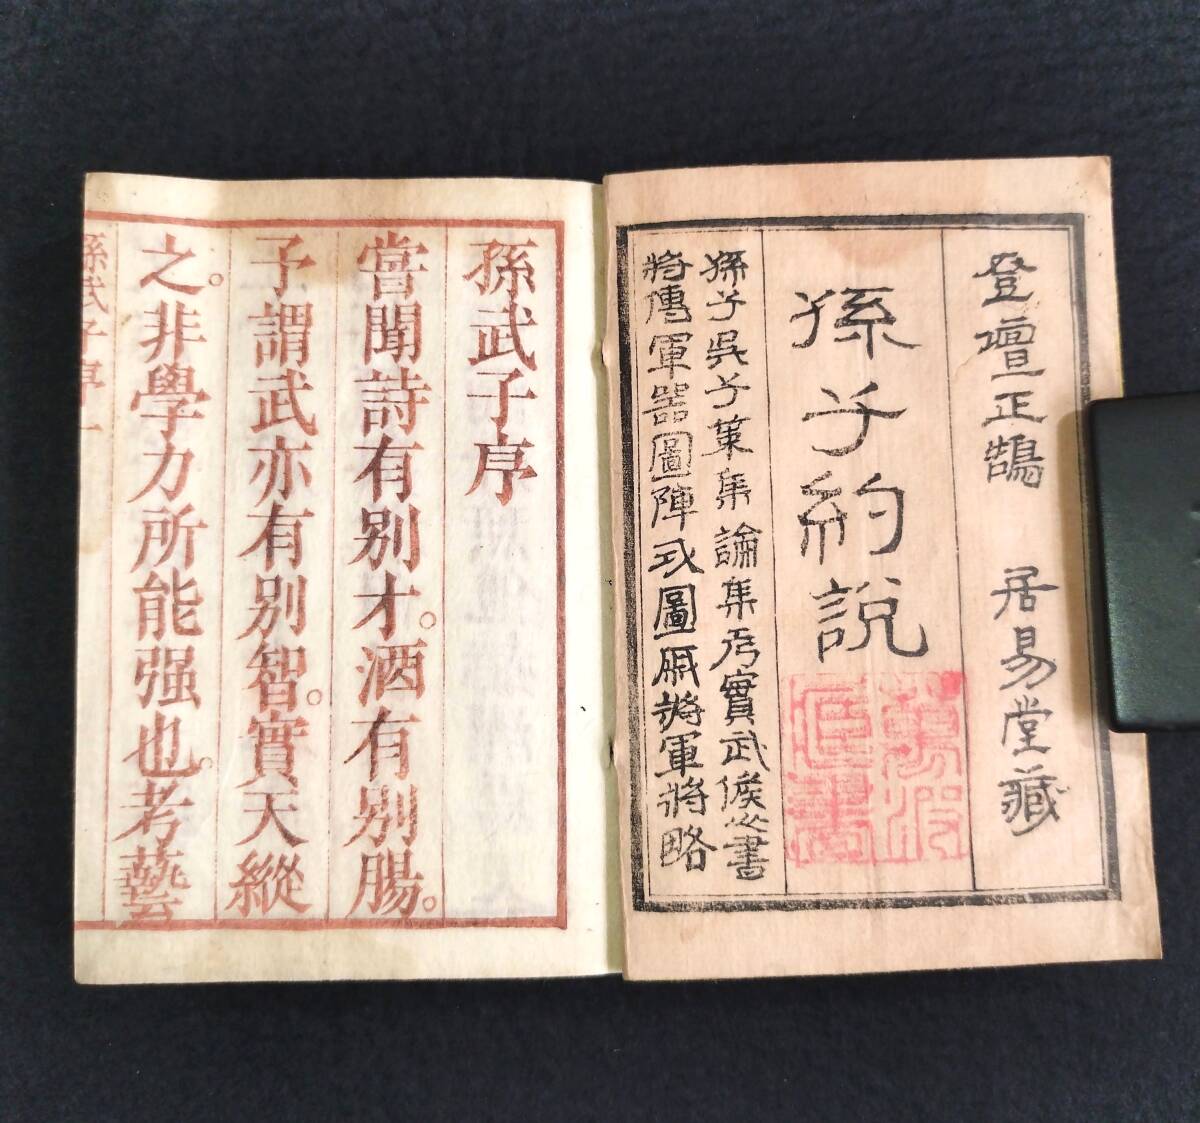 登壇正鵠　居易堂藏
孫子約說
孫子吳子策集論集實武侯心書
將傳軍器圖陣式圖戚將軍將略
孫武子序
嘗聞詩有别才。酒有别腸。
予謂武亦有别智。實天縱
之。非學力所能强也。考藝
孫武子序 一